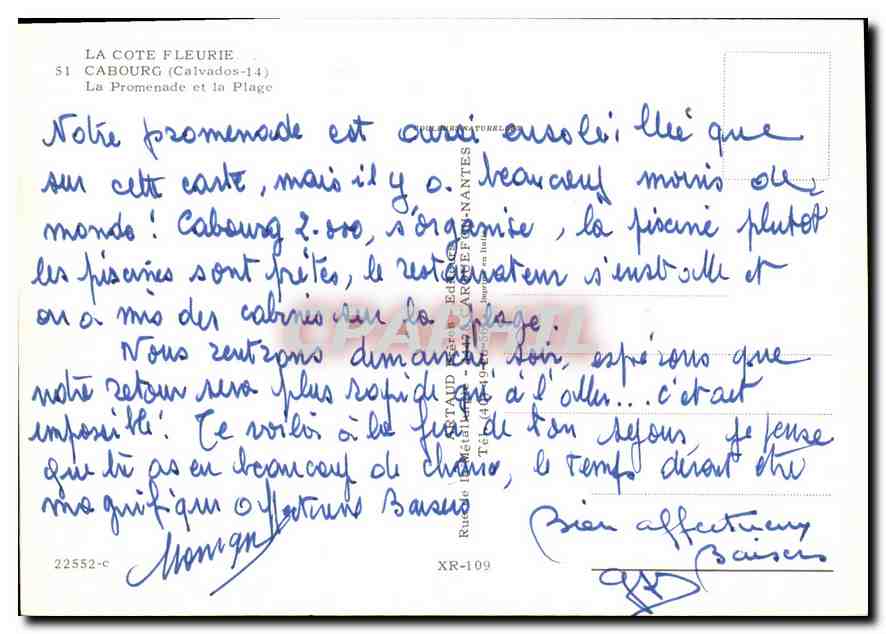 LA COTE FLEURIE
51 CABOURG (Calvados-14)
La Promenade et la Plage
Notre promenade est aussi ensoleillée que
sur cette carte, mais il y a beaucoup moins de
monde! Cabourg 2.000, s'organise, la piscine plutot
les piscines sont prêtes, le restaurateur s'installe et
on a mis des cabines sur la plage.
Nous rentrons dimanche soir, espérons que
notre retour sera plus rapide qu'à l'aller... c'etait
impossible! Te voilà à la fin de ton sejour, je pense
que tu as eu beaucoup de chance, le temps devait être
magnifique Baisers
Monique
Bien affectueux
Baisers
ARTAUD Frères Editeurs
Rue de la Métallurgie - 44 CARQUEFOU-NANTES
Imprimé en Italie
22552-c
XR-109
CPAPHIL